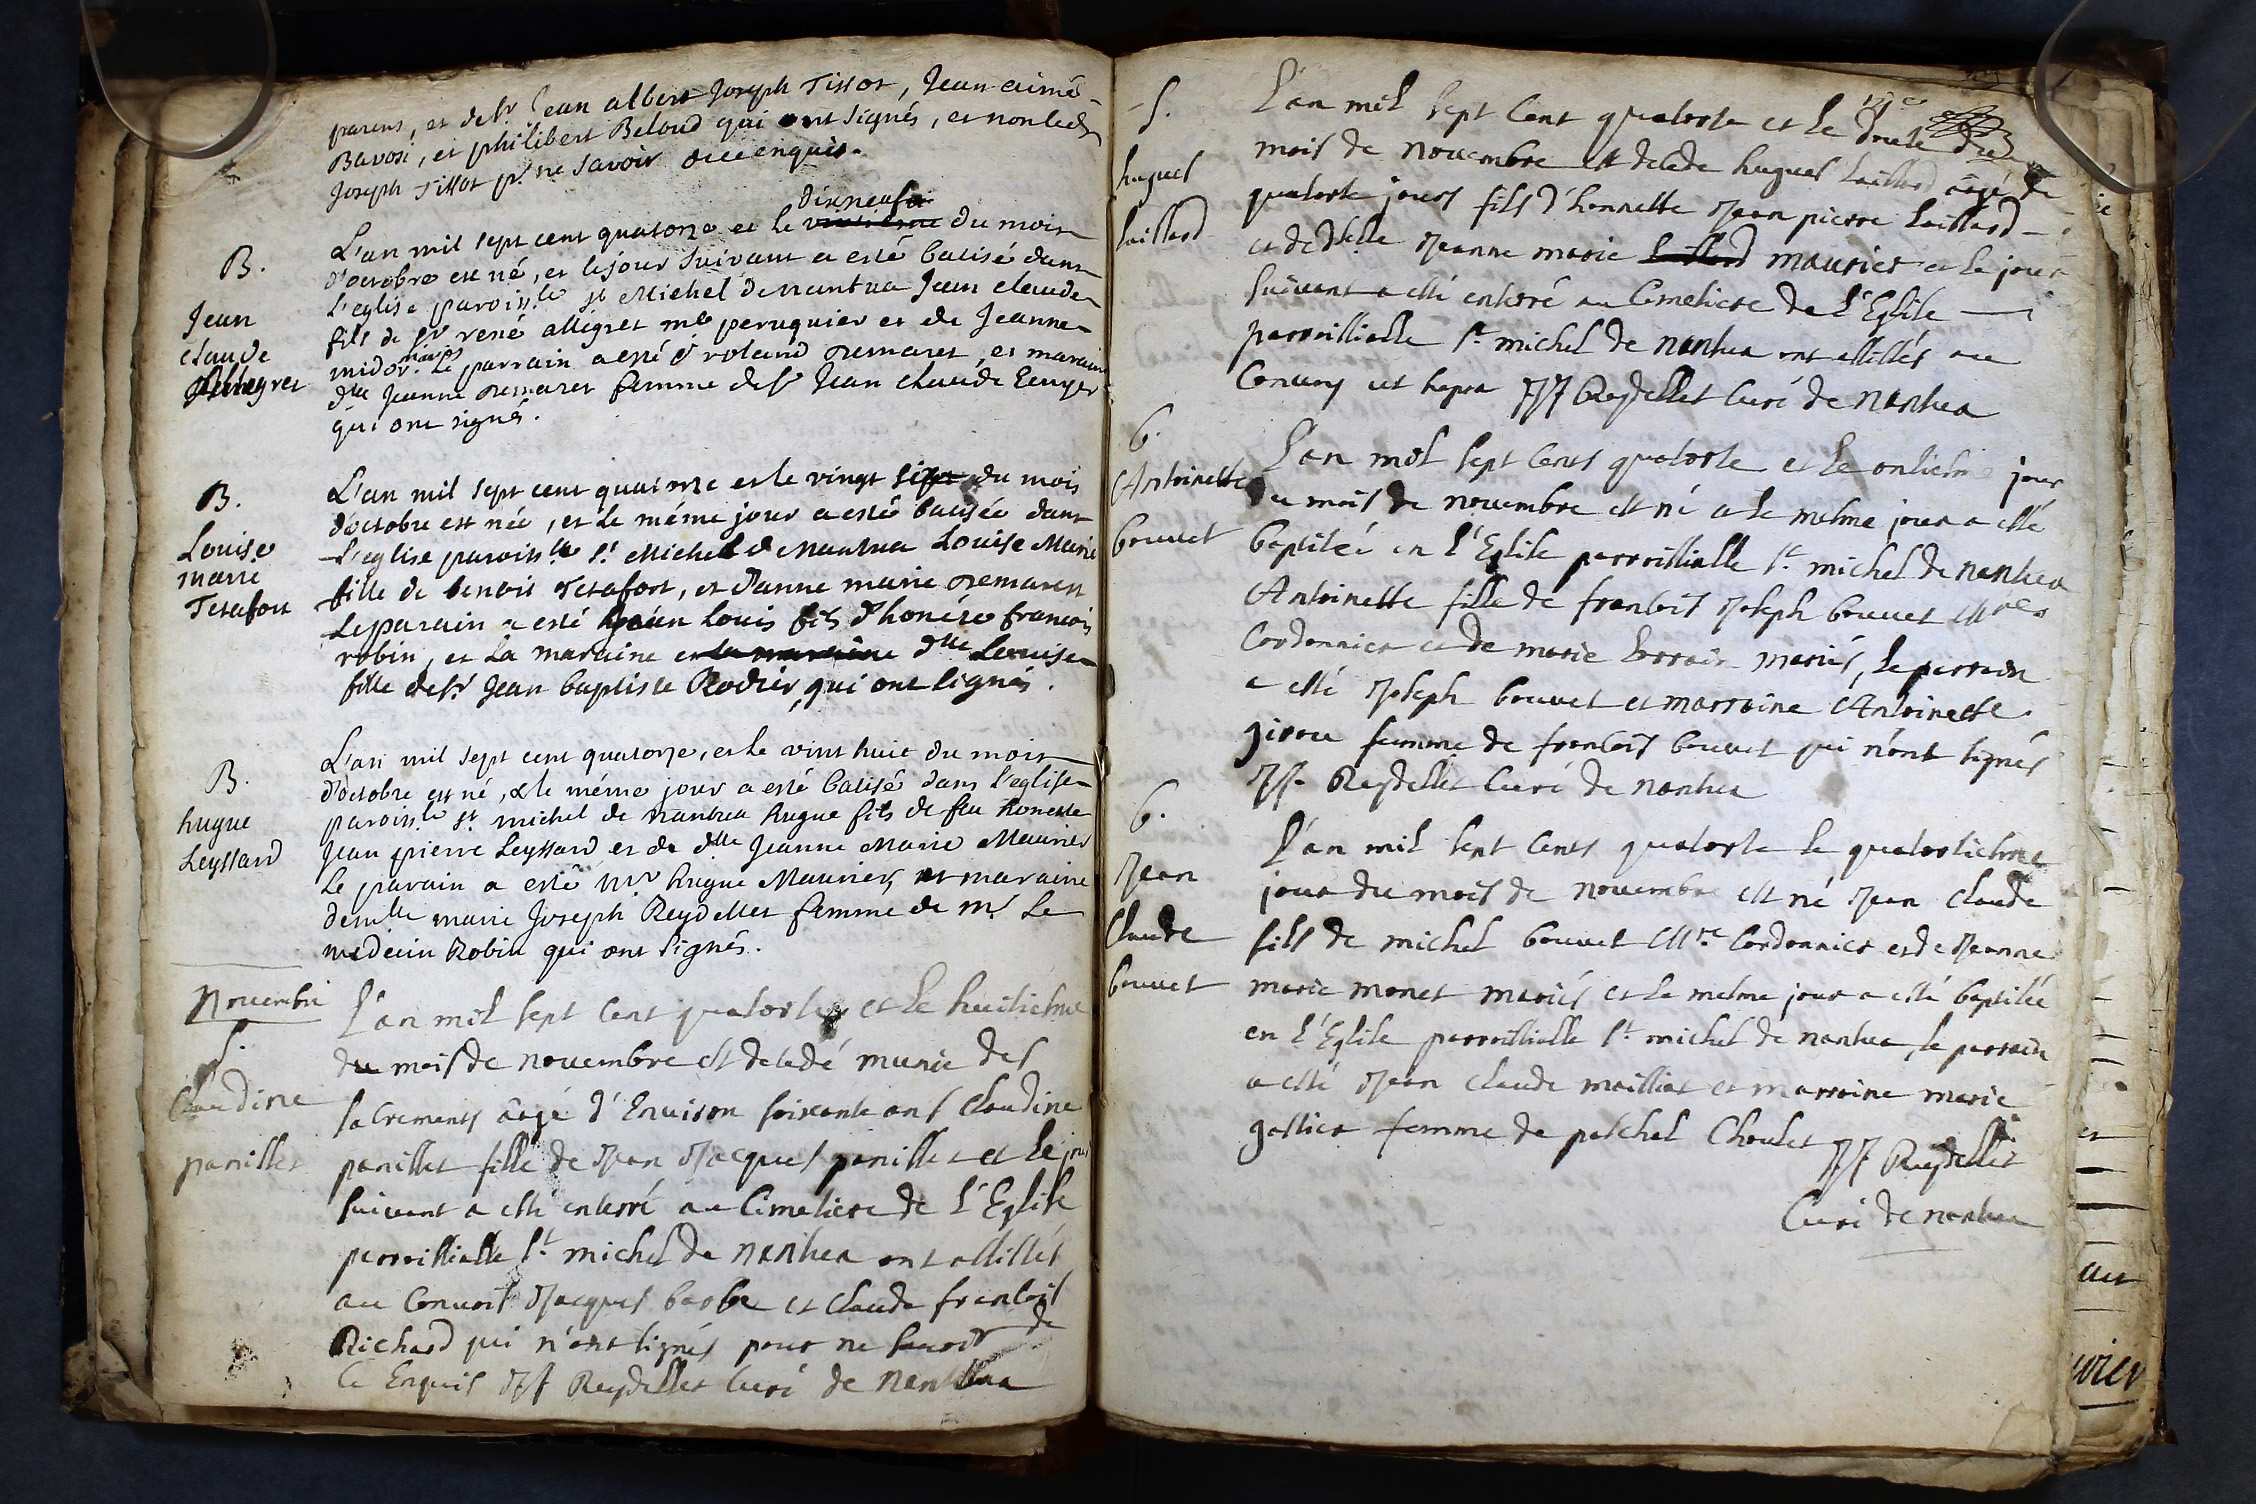 parens, et de Sr. Jean albert Joseph Tissot, Jean aimé
Bavosi, et philibert Beloud qui ont signés, et non led.
Joseph Tissot pr. ne savoir de ce enquis.
B.
Jean
claude
Allegret
L'an mil sept cent quatorze et le dixneufe du mois
d'octobre est né, et le jour suivant a esté batisé dans
l'eglise paroisle st Michel de nantua Jean claude
fils de sr rené allégret me peruquier et de Jeanne
midor mariés Le parrain a esté Sr roland Demaret, et maraine
dlle Jeanne Demaret femme de Sr Jean claude
qui ont signés.
B.
Louise
marie
Tetafort
L'an mil sept cent quatorze et le vingt six du mois
d'octobre est née, et le méme jour a esté batisée dans
L'eglise paroisle St Michel de Nantua Louise Marie
fille de benoit Tetafort, et d'anne marie Demaret
Le parain a esté Louis fils d'honéte francois
robin, et la maraine et la maraine dlle Louise
fille de Sr Jean baptiste Rodier, qui ont signés.
B.
hugue
Leyssard
L'an mil sept cent quatorze, et le vint huit du mois
d'octobre est né, & le méme jour a esté batisé dans l'eglise
paroisle st. michel de nantua hugue fils de feu honeste
Jean pierre Leyssard et de dlle Jeanne Marie Maurier
Le parain a esté Mr hugue Maurier, et maraine
demlle marie Joseph Reydellet femme de mr Le
medecin Robin qui ont signés.
Novembre
S.
Claudine
panillet
L'an mil sept cent quatorse et le huitiesme
du mois de novembre est decedé munie des
sacrements âagé d'Environ soixante ans Claudine
panillet fille de Jean Jacques panillet et le jour
suivant a esté enterré au Cimetiere de L'Eglise
parroissialle St. michel de nantua ont assistés
au Convoit Jacques barbe et claude francois
Richard qui n'ont signés pour ne savoir de
ce Enquis JJ Reydellet Curé de nantua
S.
hugues
laissard
L'an mil sept Cent quatorse et le du
mois de novembre est decede hugues laissard âagé de
quatorse jours fils d'honneste Jean pierre laissard
et de dlle Jeanne marie laissard maurier et le jour
suivant a esté enterré au Cimetiere de L'Eglise
parroissialle St. michel de nantua ont assistés au
Convoy JJ Reydellet Curé de nantua
b.
Antoinette
bouvet
L'an mil sept Cents quatorse et le onsiesme jour
du mois de novembre est né et le mesme jour a esté
baptiseé en l'Eglise parroissialle St. michel de nantua
Antoinette fille de francois Joseph bouvet Mre
Cordonnier et de marie mariés, le parrain
a esté Joseph bouvet et marraine Antoinette
girou femme de francois bouvet qui n'ont signés
JJ. Reydellet Curé de nantua
b.
Jean
Claude
bouvet
L'an mil sept Cents quatorse le quatorsiesme
jour du mois de novembre est né Jean Claude
fils de michel bouvet Mre. Cordonnier et de Jeanne
marie monet mariés et le mesme jour a esté baptisée
en l'Eglise parroissialle St. michel de nantua, le parrain
a esté Jean claude mailliat et marraine marie
femme de Choulet JJ Reydellet
Curé de nantua